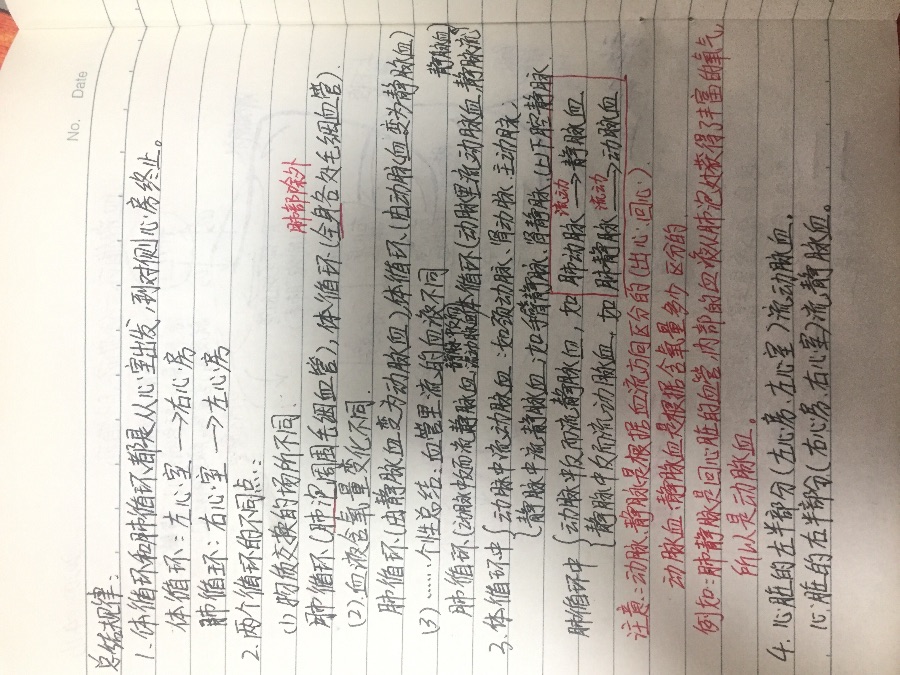 No. Date
总结规律:
1. 体循环和肺循环都是从心室出发,到对侧心房终止。
体循环:左心室→右心房
肺循环:右心室→左心房
2. 两个循环的不同点:
(1) 物质交换的场所不同.
肺部除外
肺循环(肺泡周围毛细血管),体循环(全身各处毛细血管).
(2) 血液含氧量变化不同
肺循环(由静脉血变为动脉血)体循环(由动脉血变为静脉血)
(3) ……个性总结:血管里流的血液不同
肺循环(动脉中流静脉血,体循环(动脉里流动脉血,静脉流静脉血)
3. 体循环中{动脉中流动脉血:如颈动脉、肾动脉、主动脉.
静脉中流静脉血,如手臂静脉、肾静脉、上下腔静脉
肺循环中{动脉中反而流静脉血,如肺动脉 流动→ 静脉血
静脉中反而流动脉血,如肺静脉 流动→ 动脉血
注意:动脉、静脉是根据血流方向区分的(出心、回心)
动脉血、静脉血是根据含氧量多少区分的
例如:肺静脉是回心脏的血管,内部的血液从肺泡处获得了丰富的氧气,
所以是动脉血。
4. 心脏的左半部分(左心房、左心室)流动脉血.
心脏的右半部分(右心房、右心室)流静脉血.